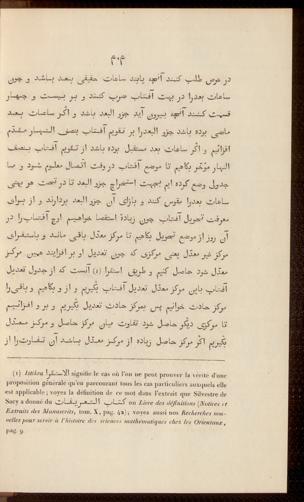 ۴۰۴
در عرض طلب کنند آنچه یابند ساعات حقیقی بعد باشد و چون
ساعات بعدرا در بهت آفتاب ضرب کنند و بر بیست و چهار
قسمت کنند آنچه بیرون آید جزو البعد باشد و اگر ساعات بعد
ماضی بوده باشد جزو البعدرا بر تقویم آفتاب بنصف النهار مقدم
افزائیم و اگر ساعات بعد مستقبل بوده باشد از تقویم آفتاب بنصف
النهار مؤخر بکاهیم تا موضع آفتاب در وقت اتصال معلوم شود و ما
جدولی وضع کرده ایم بجهت استخراج جزو البعد تا در تحت هر بهتی
ساعات بعدرا مقوس کنند و بازای آن جزو البعد بردارند و از برای
معرفت تحویل آفتاب چون زیادة استقصا خواهیم اوج آفتاب‌را در
آن روز از موضع تحویل بکاهیم تا مرکز معدل باقی ماند و باستقرای
مرکز غیر معدل یعنی مرکزی که چون تعدیل او بر افزایند همین مرکز
معدل شود حاصل کنیم و طریق استقرا (1) آنست که از جدول تعدیل
آفتاب باین مرکز معدل تعدیل آفتاب بگیریم و از و بکاهیم و باقی‌را
مرکز حادث خوانیم پس بمرکز حادث تعدیل بگیریم و بر و افزائیم
تا مرکزی دیگر حاصل شود تفاوت میان مرکز حاصل و مرکز معدل
بگیریم اگر مرکز حاصل زیاده از مرکز معدل باشد آن تفاوت‌را از
(1) Istikra الاستقرا signifie le cas où l'on ne peut prouver la vérité d'une
proposition générale qu'en parcourant tous les cas particuliers auxquels elle
est applicable; voyez la définition de ce mot dans l'extrait que Silvestre de
Sacy a donné du كتاب التعريفات ou Livre des définitions (Notices et
Extraits des Manuscrits, tom. X, pag. 42); voyez aussi nos Recherches nou-
velles pour servir à l'histoire des sciences mathématiques chez les Orientaux,
pag. 9.